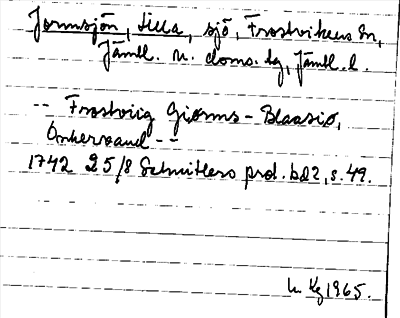 Jormsjön, Lilla, sjö, Frostvikens sn,
Jämtl. n. doms. hg, Jämtl. l.
-- Frostviig Giorms - Blaasiö,
Onkervand --
1742 25/8 Schnitlers prot. bd 2, s. 49.
1965.